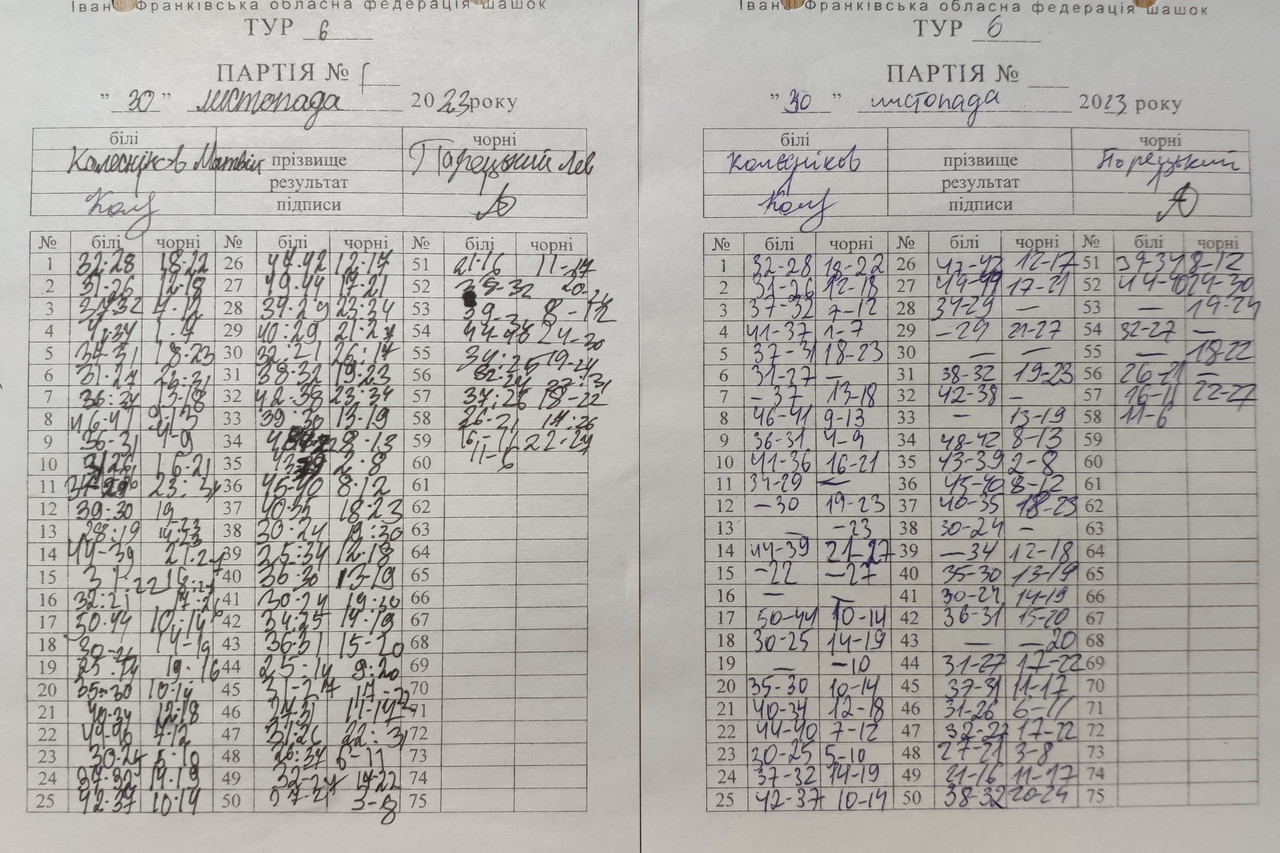 Івано Франківська обласна федерація шашок
ТУР 6
ПАРТІЯ №
" 30 " листопада 2023 року
білі чорні
Колесніков Матвій прізвище Парецький Лев
результат
підписи
№ білі чорні № білі чорні № білі чорні
1 32-28 18-22 26 47-42 12-17 51 21-16 11-17
2 31-26 12-18 27 49-44 17-21 52
3 37-32 7-12 28 34-29 23:34 53
4 29 40:29 21-27 54
5 37-31 18-23 30 32:21 26:17 55
6 31-27 31 38-32 19-23 56
7 13-18 32 42-38 23:34 57
8 46-41 9-13 33 39:30 13-19 58
9 36-31 4-9 34 8-13 59
10 16-21 35 2-8 60
11 36 45-40 8-12 61
12 39:30 19 37 40-35 18-23 62
13 28:19 38 30-24 19:30 63
14 44-39 21-27 39 25:34 12-18 64
15 40 13-19 65
16 32:21 41 30-24 19:30 66
17 50-44 10-14 42 34:25 14-19 67
18 14-19 43 36-31 15-20 68
19 44 25-14 9:20 69
20 35-30 10-14 45 31-27 17-22 70
21 40-34 12-18 46 37-31 11-17 71
22 7-12 47 31-26 22:31 72
23 5-10 48 26:37 6-11 73
24 37-32 14-19 49 32-27 17-22 74
25 42-37 10-14 50 27-21 3-8 75
Івано Франківська обласна федерація шашок
ТУР 6
ПАРТІЯ №
" 30 " листопада 2023 року
білі чорні
Колесніков прізвище Порецький
результат
підписи
№ білі чорні № білі чорні № білі чорні
1 32-28 18-22 26 47-42 12-17 51 39-34 8-12
2 31-26 12-18 27 49-44 17-21 52 44-40 24-30
3 37-32 7-12 28 34-29 — 53 — 19-24
4 41-37 1-7 29 -29 21-27 54 32-27 —
5 37-31 18-23 30 — — 55 — 18-22
6 31-27 — 31 38-32 19-23 56 26-21 —
7 -37 13-18 32 42-38 — 57 16-11 22-27
8 46-41 9-13 33 — 13-19 58 11-6
9 36-31 4-9 34 48-42 8-13 59
10 41-36 16-21 35 43-39 2-8 60
11 34-29 — 36 45-40 8-12 61
12 -30 19-23 37 40-35 18-23 62
13 — -23 38 30-24 — 63
14 44-39 21-27 39 -34 12-18 64
15 -22 -27 40 35-30 13-19 65
16 — — 41 30-24 14-19 66
17 50-44 10-14 42 36-31 15-20 67
18 30-25 14-19 43 — -20 68
19 — -10 44 31-27 17-22 69
20 35-30 10-14 45 37-31 11-17 70
21 40-34 12-18 46 31-26 6-11 71
22 44-40 7-12 47 32-27 17-22 72
23 30-25 5-10 48 27-21 3-8 73
24 37-32 14-19 49 21-16 11-17 74
25 42-37 10-14 50 38-32 20-24 75